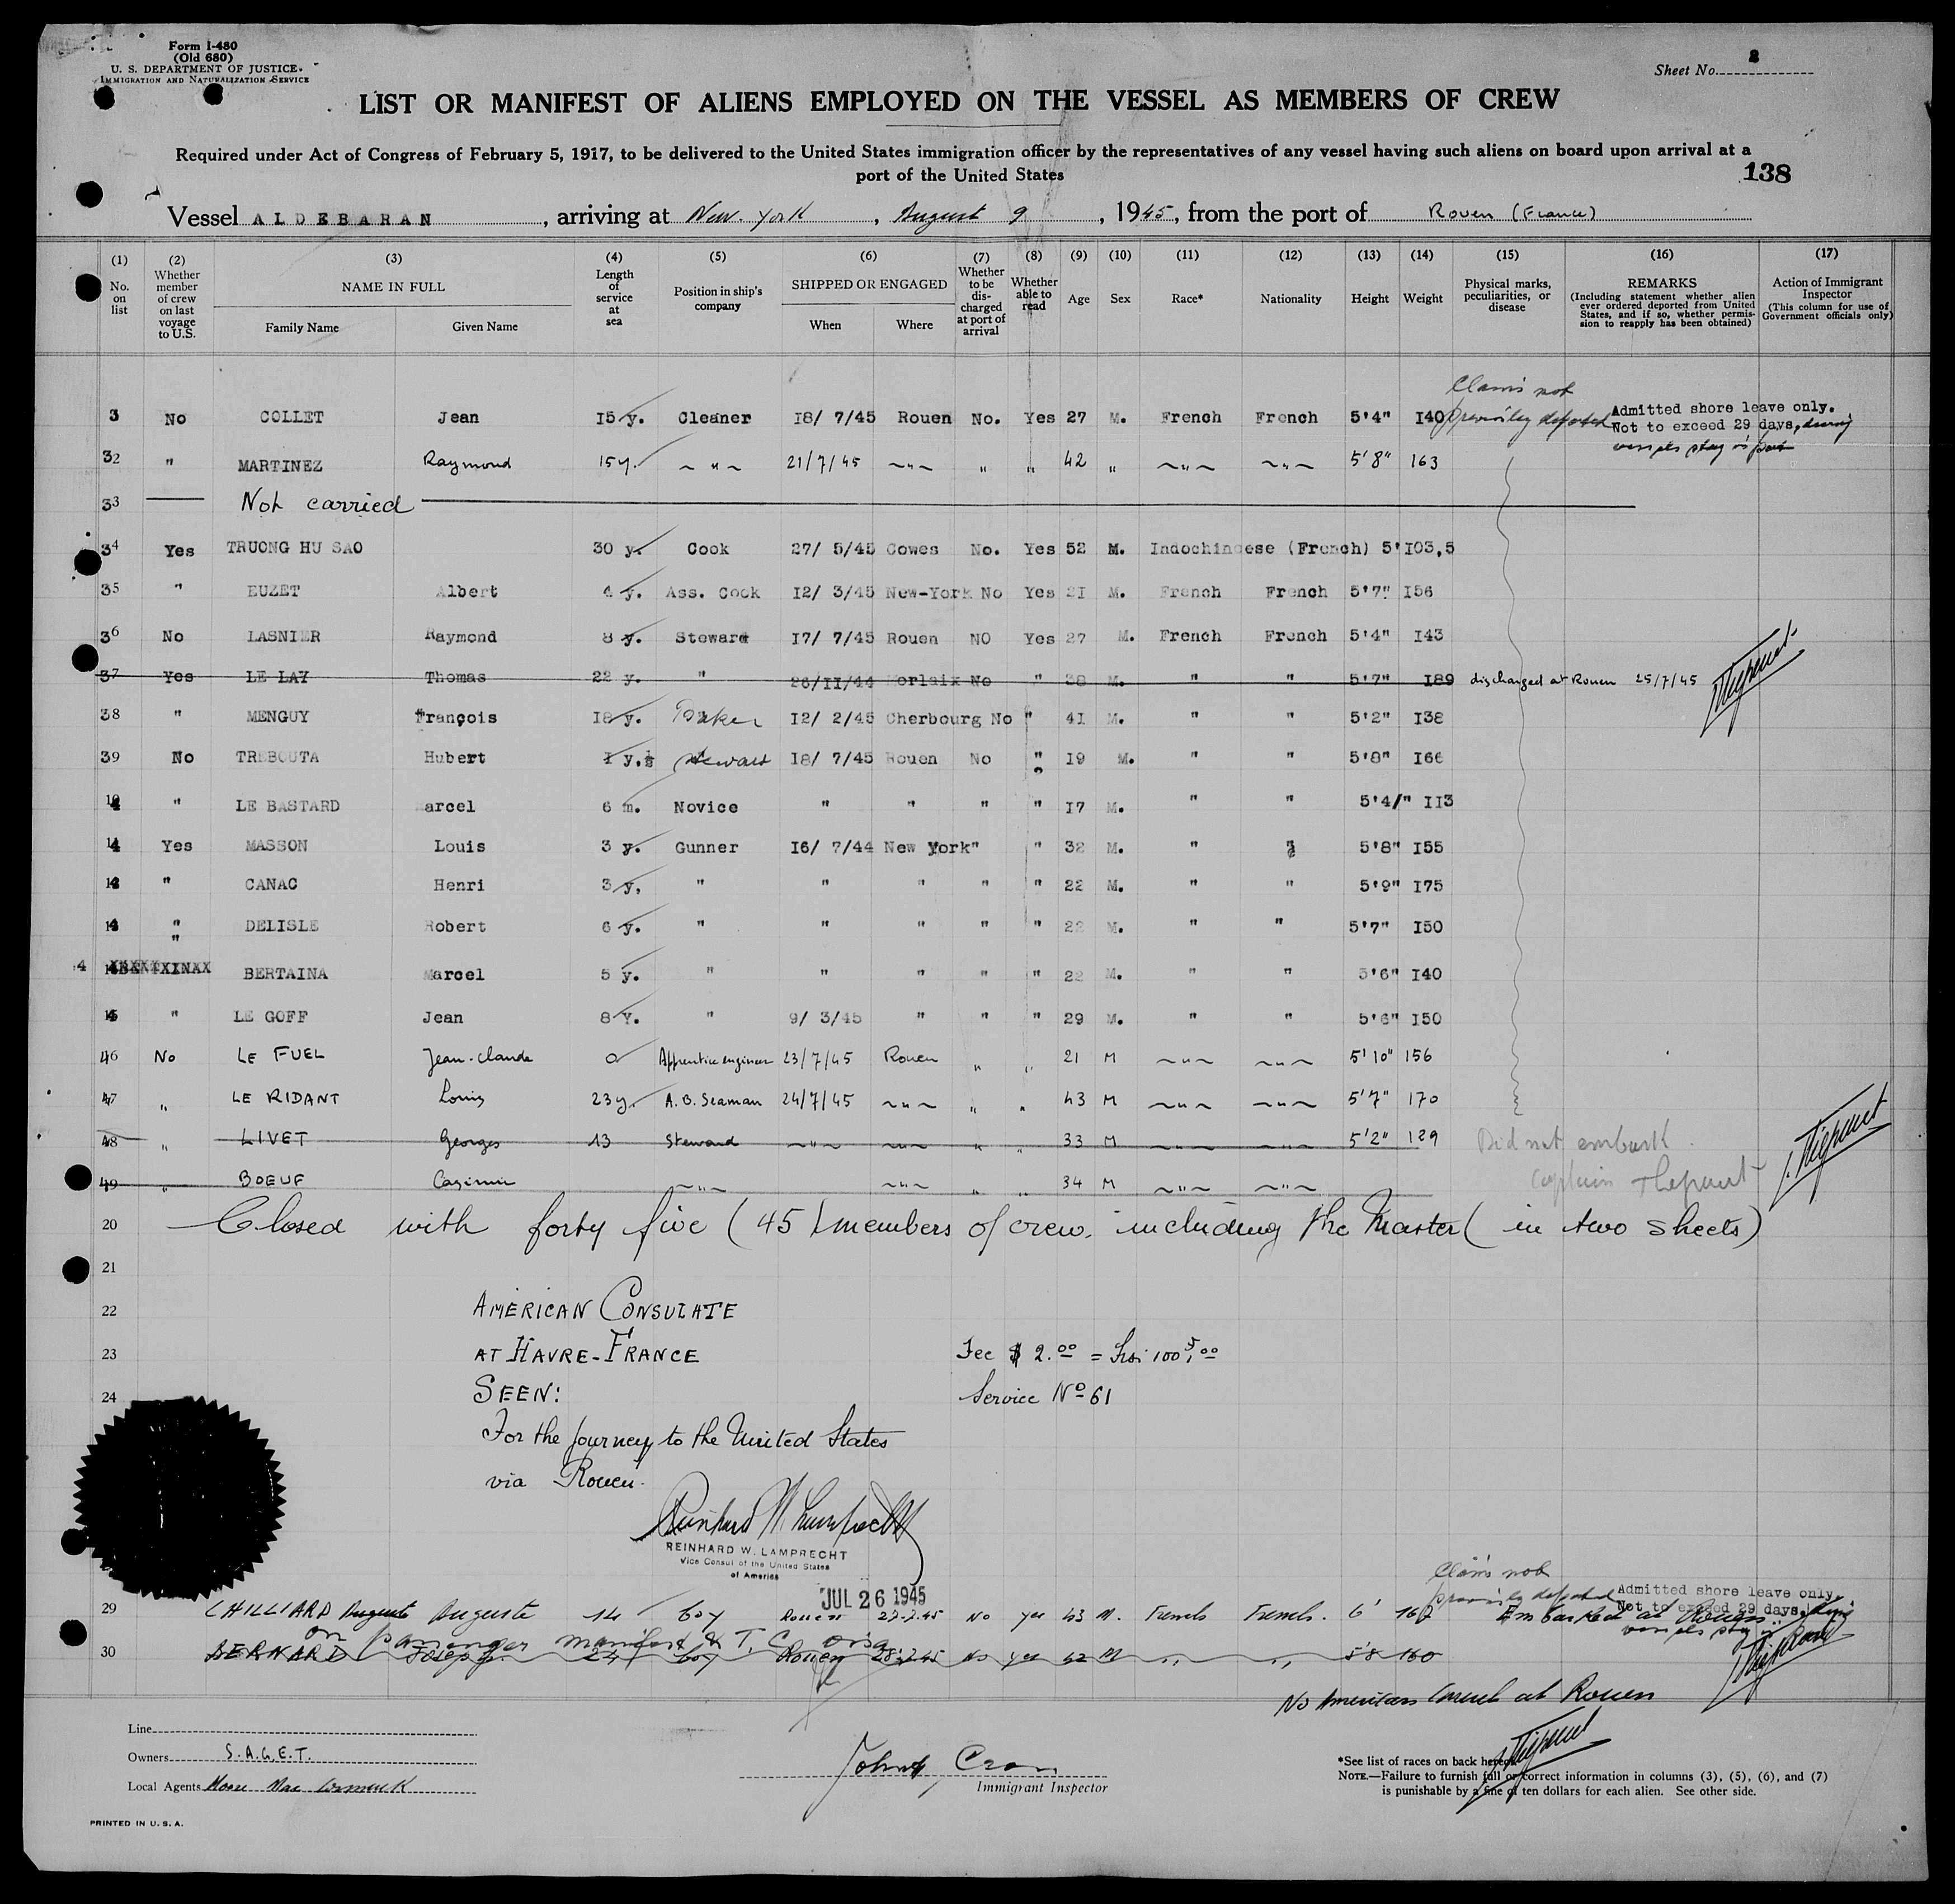 Form I-480
(Old 680)
U. S. DEPARTMENT OF JUSTICE.
IMMIGRATION AND NATURALIZATION SERVICE
Sheet No. 2
LIST OR MANIFEST OF ALIENS EMPLOYED ON THE VESSEL AS MEMBERS OF CREW
Required under Act of Congress of February 5, 1917, to be delivered to the United States immigration officer by the representatives of any vessel having such aliens on board upon arrival at a
port of the United States
138
Vessel ALDEBARAN, arriving at New York, August 9, 1945, from the port of Rouen (France)
(1) (2) (3) (4) (5) (6) (7) (8) (9) (10) (11) (12) (13) (14) (15) (16) (17)
No. on list
Whether member of crew on last voyage to U.S.
NAME IN FULL
Family Name Given Name
Length of service at sea
Position in ship's company
SHIPPED OR ENGAGED
When Where
Whether to be discharged at port of arrival
Whether able to read
Age
Sex
Race*
Nationality
Height
Weight
Physical marks, peculiarities, or disease
REMARKS
(Including statement whether alien ever ordered deported from United States, and if so, whether permission to reapply has been obtained)
Action of Immigrant Inspector
(This column for use of Government officials only)
Claims not
3 No COLLET Jean I5 y. Cleaner I8/ 7/45 Rouen No. Yes 27 M. French French 5'4" I40 previously deported Admitted shore leave only.
Not to exceed 29 days, during
vessels stay in port
32 " MARTINEZ Raymond 15y. " 21/7/45 " " " 42 " " " 5'8" 163
33 Not carried
34 Yes TRUONG HU SAO 30 y. Cook 27/ 5/45 Cowes No. Yes 52 M. Indochinese (French) 5' I03,5
35 " EUZET Albert 4 y. Ass. Cook I2/ 3/45 New-York No Yes 2I M. French French 5'7" I56
36 No LASNIER Raymond 8 y. Steward I7/ 7/45 Rouen NO Yes 27 M. French French 5'4" I43
37 Yes LE LAY Thomas 22 y. " 26/II/44 Morlaix No " 38 M. " " 5'7" I89 discharged at Rouen 25/7/45
38 " MENGUY François I8 y. Baker I2/ 2/45 Cherbourg No " 41 M. " " 5'2" I38
39 No TREBOUTA Hubert I y.½ Steward I8/ 7/45 Rouen No " 19 M. " " 5'8" I66
" LE BASTARD Marcel 6 m. Novice " " " " I7 M. " " 5'4/" II3
Yes MASSON Louis 3 y. Gunner I6/ 7/44 New York " " 32 M. " " 5'8" I55
" CANAC Henri 3 y. " " " " " 22 M. " " 5'9" I75
" DELISLE Robert 6 y. " " " " " 22 M. " " 5'7" I50
" BERTAINA Marcel 5 y. " " " " " 22 M. " " 5'6" I40
" LE GOFF Jean 8 Y. " 9/ 3/45 " " " 29 M. " " 5'6" I50
46 No LE FUEL Jean-Claude 0 Apprentice engineer 23/7/45 Rouen " " 21 M " " 5'10" 156
47 " LE RIDANT Louis 23y. A.B. Seaman 24/7/45 " " " 43 M " " 5'7" 170
48 " LIVET Georges 13 Steward " " " " 33 M " " 5'2" 129 Did not embark
49 " BOEUF Casimir " " " " 34 M " " Captain Thepaut
20 Closed with forty five (45) members of crew including the Master (in two sheets)
21
22 AMERICAN CONSULATE
23 AT HAVRE-FRANCE Fee $ 2.00 = Frs: 100,00
24 SEEN: Service No 61
For the Journey to the United States
via Rouen.
Reinhard W. Lamprecht
REINHARD W. LAMPRECHT
Vice Consul of the United States
of America
JUL 26 1945
Claims not
previously deported Admitted shore leave only.
Not to exceed 29 days, during
vessels stay in
29 CHILLIARD Auguste Auguste 14 boy Rouen 27-7-45 No yes 43 M. French French. 6' 160 Embarked at Rouen
on passenger manifest & T.C. visa
30 BERNARD Joseph 24 boy Rouen 28-7-45 No yes 42 M " " 5'8 160
No American Consul at Rouen
Line
Owners S.A.G.E.T.
Local Agents Moore Mac Cormack
Immigrant Inspector
*See list of races on back hereof.
NOTE.—Failure to furnish full or correct information in columns (3), (5), (6), and (7)
is punishable by a fine of ten dollars for each alien. See other side.
PRINTED IN U. S. A.